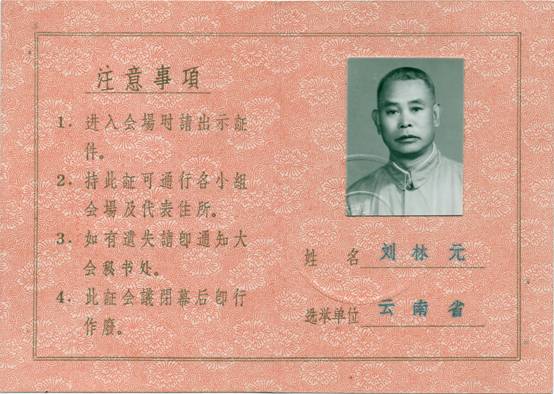 注意事項
1. 进入会場时請出示証
件。
2. 持此証可通行各小組
会場及代表住所。
3. 如有遺失請卽通知大
会秘书处。
4. 此証会議閉幕后卽行
作廢。
姓 名 刘林元
选举单位 云南省